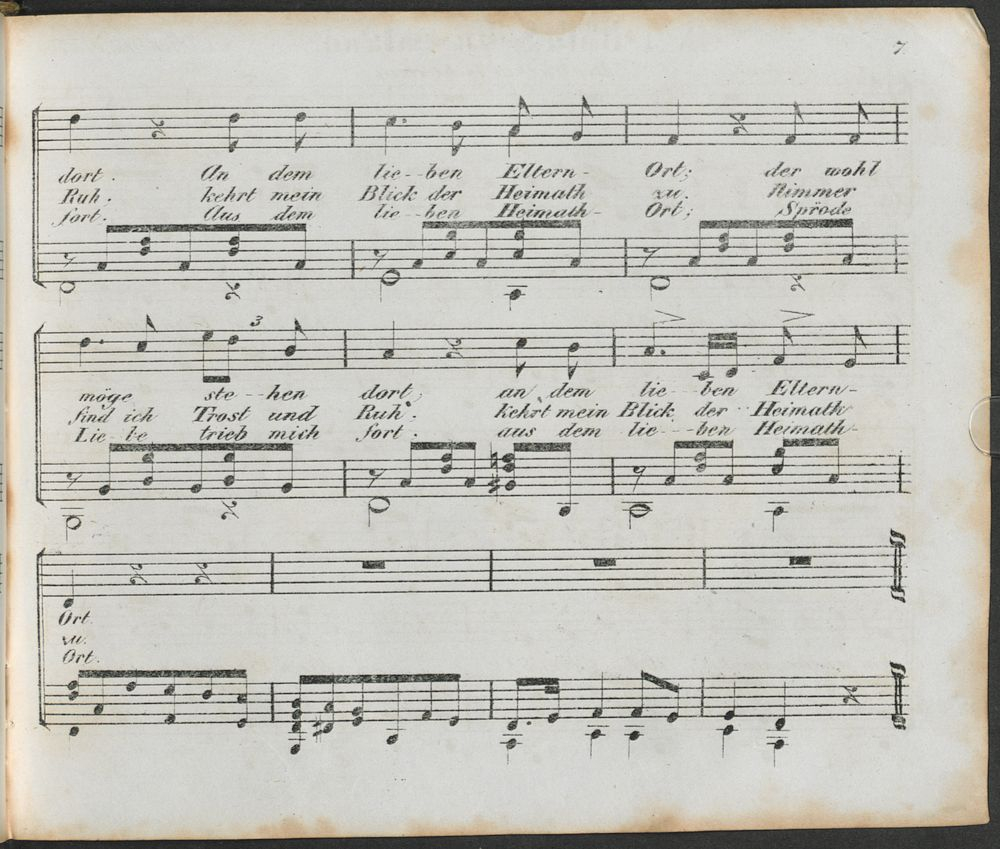 7.
dort. An dem lie--ben Eltern- Ort; der wohl
Ruh. kehrt mein Blick der Heimath zu. Nimmer
fort. Aus dem lie--ben Heimath- Ort; Spröde
3
möge ste--hen dort; an dem lie--ben Eltern-
find ich Trost und Ruh. Kehrt mein Blick der Heimath
Lie-be trieb mich fort. aus dem lie---ben Heimath-
Ort.
zu.
Ort.